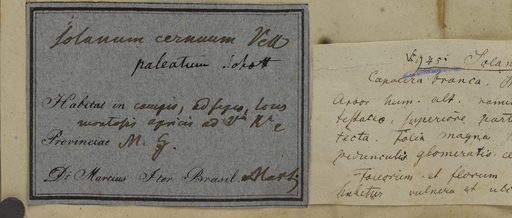 Solanum cernuum Vell
paleatum Schott
Habitat in campis, ad sepes, locis
montosis apricis ad
Provinciae M. G.
Dr Martius Iter Brasil. Martii
945. Solan
Capoeira branca.
Arbor hum. alt. rami
superiore part
tecta. Folia magna
pedunculis glomeratis
foliorum et florum
vulnera et